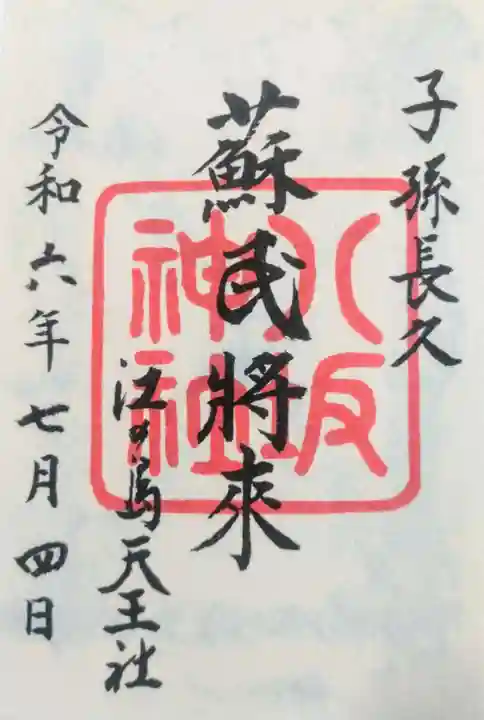 子孫長久
蘇民將來
江の島天王社
令和六年七月四日
八坂神社